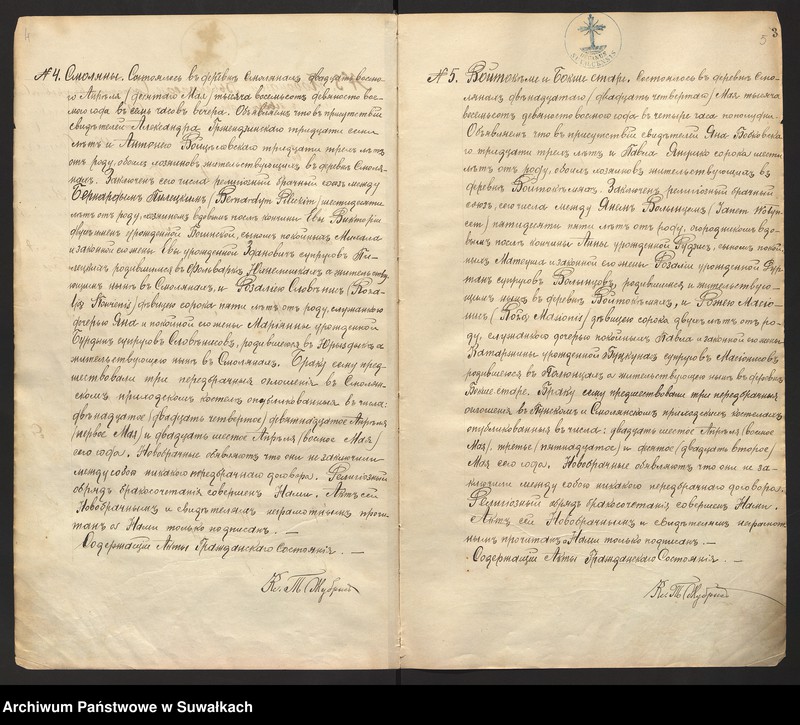 4
№ 4. Смоляны. Состоялось въ деревнѣ Смолянахъ двадцать восьмо-
го Апрѣля / десятаго Мая / тысяча восемьсотъ девяносто вось-
мого года въ семь часовъ вечера. Объявляемъ что въ присутствіи
свидѣтелей Александра тридцати семи
лѣтъ и Антонего тридцати трехъ лѣтъ
отъ роду, обоихъ хозяиновъ жительствующихъ въ деревнѣ Смоля-
нахъ. Заключенъ сего числа религіозный брачный союзъ между
Бернардыномъ Пилецкимъ (Bernardyn Pilecki) шестидесяти
лѣтъ отъ роду, хозяиномъ вдовымъ послѣ кончины Евы Викторіи
двуименъ урожденной сыномъ покойныхъ Михала
и законной его жены Евы урожденной Здановичъ супруговъ Пи-
лецкихъ родившимся въ Фольваркѣ а жительству-
ющимъ нынѣ въ Смолянахъ, и Розаліею (Roza-
lją) дѣвицею сорока пяти лѣтъ отъ роду, служанкою
дочерью Яна и покойной его жены Маріянны урожденной
супруговъ родившеюся въ а
жительствующею нынѣ въ Смолянахъ. Браку сему пред-
шествовали три передбрачныя оглошенія въ Смолян-
скомъ приходскомъ костелѣ опубликованныя въ числа:
двѣнадцатое / двадцать четвертое / девятнадцатое Апрѣля
/ первое Мая / и двадцать шестое Апрѣля / восьмое Мая /
сего года. Новобрачные объявляютъ что они не заключили
между собою никакого передбрачнаго договора. Религіозный
обрядъ бракосочетанія совершенъ Нами. Актъ сей
Новобрачнымъ и свидѣтелямъ неграмотнымъ прочи-
танъ Нами только подписанъ. —
Содержащій Акты Гражданскаго Состоянія. —
Кс. Т
3
5
№ 5. Войтокѣме и Бокше старе. Состоялось въ деревнѣ Смо-
лянахъ двѣнадцатаго / двадцать четвертаго / Мая тысяча
восемьсотъ девяносто восьмого года въ четыре часа пополудни.
Объявляемъ что въ присутствіи свидѣтелей Яна
го тридцати трехъ лѣтъ и Павла Янулько сорока шести
лѣтъ отъ роду, обоихъ хозяиновъ жительствующихъ въ
деревнѣ Войтокѣмахъ. Заключенъ религіозный брачный
союзъ, сего числа между Яномъ (Janem
) пятидесяти пяти лѣтъ отъ роду, огородникомъ вдо-
вымъ послѣ кончины Анны урожденной сыномъ покой-
ныхъ Матеуша и законной его жены Розаліи урожденной
супруговъ родившимся и жительствую-
щимъ нынѣ въ деревнѣ Войтокѣмахъ, и Розею Масіо-
нисъ (Rozą Masionis) дѣвицею сорока двухъ лѣтъ отъ ро-
ду, служанкою дочерью покойныхъ Павла и законной его жены
Катаржины урожденной супруговъ Масіонисовъ,
родившеюся въ а жительствующею нынѣ въ деревнѣ
Бокше старе. Браку сему предшествовали три передбрачныя
оглошенія въ и Смолянскомъ приходскихъ костелахъ
опубликованныя въ числа: двадцать шестое Апрѣля / восьмое
Мая /, третье / пятнадцатое / и десятое / двадцать второе /
Мая сего года. Новобрачные объявляютъ что они не за-
ключили между собою никакого передбрачнаго договора.
Религіозный обрядъ бракосочетанія совершенъ Нами.
Актъ сей Новобрачнымъ и свидѣтелямъ неграмот-
нымъ прочитанъ Нами только подписанъ. —
Содержащій Акты Гражданскаго Состоянія. —
Кс. Т
Archiwum Państwowe w Suwałkach